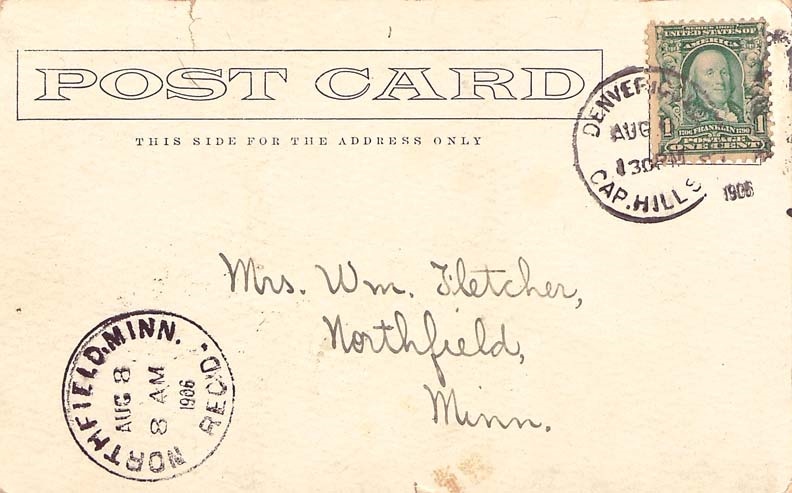 POST CARD
THIS SIDE FOR THE ADDRESS ONLY
SERIES 1902
UNITED STATES OF
AMERICA
1706 FRANKLIN 1790
1 POSTAGE 1
ONE CENT
DENVER
AUG
130PM
CAP. HILL S
1906
Mrs. Wm. Fletcher,
Northfield,
Minn.
NORTHFIELD, MINN.
AUG 8
8 AM
1906
REC'D.